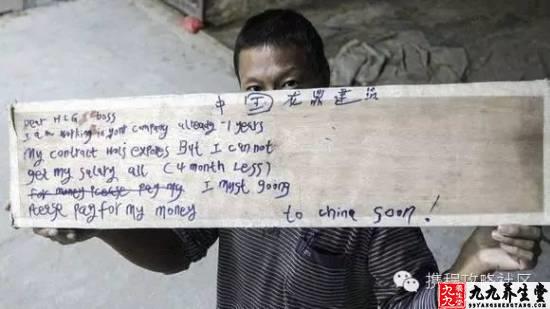 中国 龙鼎建筑
Dear HLG,s boss
I am working in your company already 1 years
My contract has expires But I can not
get my salary all (4 month Less)
for money Please pay my I must goong
Please pay for my money to china soon!
携程攻略社区
九九养生堂
99YANGSHENGTANG.COM